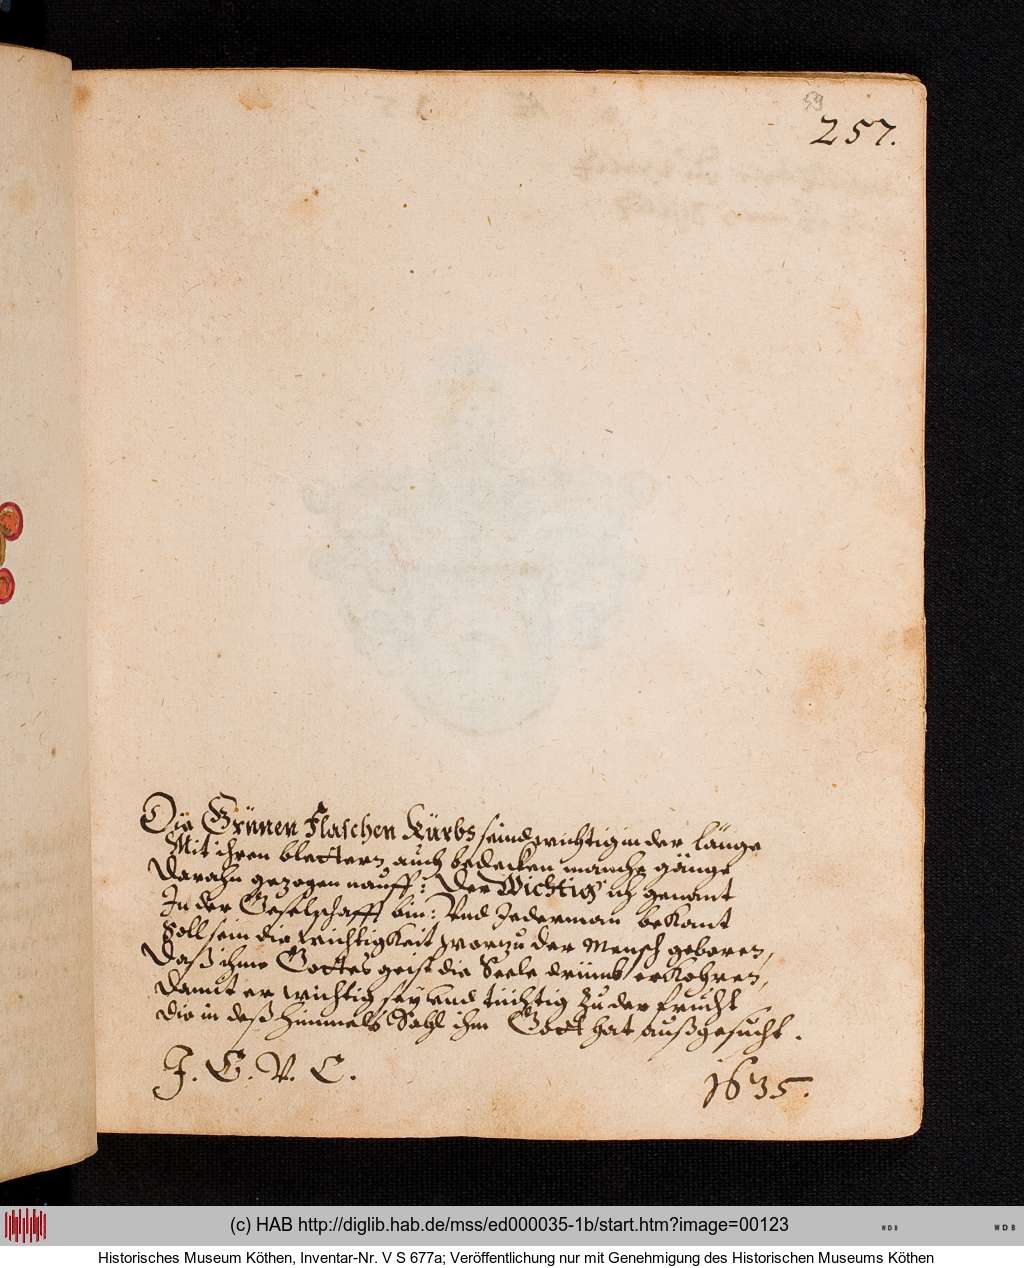 59
257.
Die Grünen Flaschen Kürbs seind wichtig in der länge
Mit ihren blettern auch bedecken manche gänge
Darahn gezogen nauff: Der Wichtig ich genant
In der Geselschafft bin: Vnd Jederman bekant
Soll sein die wichtigkeit worzu der Mensch geboren,
Daß ihme Gottes geist die Seele drümb erkohren,
Damit er wichtig sey vnd tüchtig zu der frucht
Die in deß himmels Sahl ihm Gott hat außgesucht.
J. E. V. E.
1635.
(c) HAB http://diglib.hab.de/mss/ed000035-1b/start.htm?image=00123
WDB
WDB
Historisches Museum Köthen, Inventar-Nr. V S 677a; Veröffentlichung nur mit Genehmigung des Historischen Museums Köthen